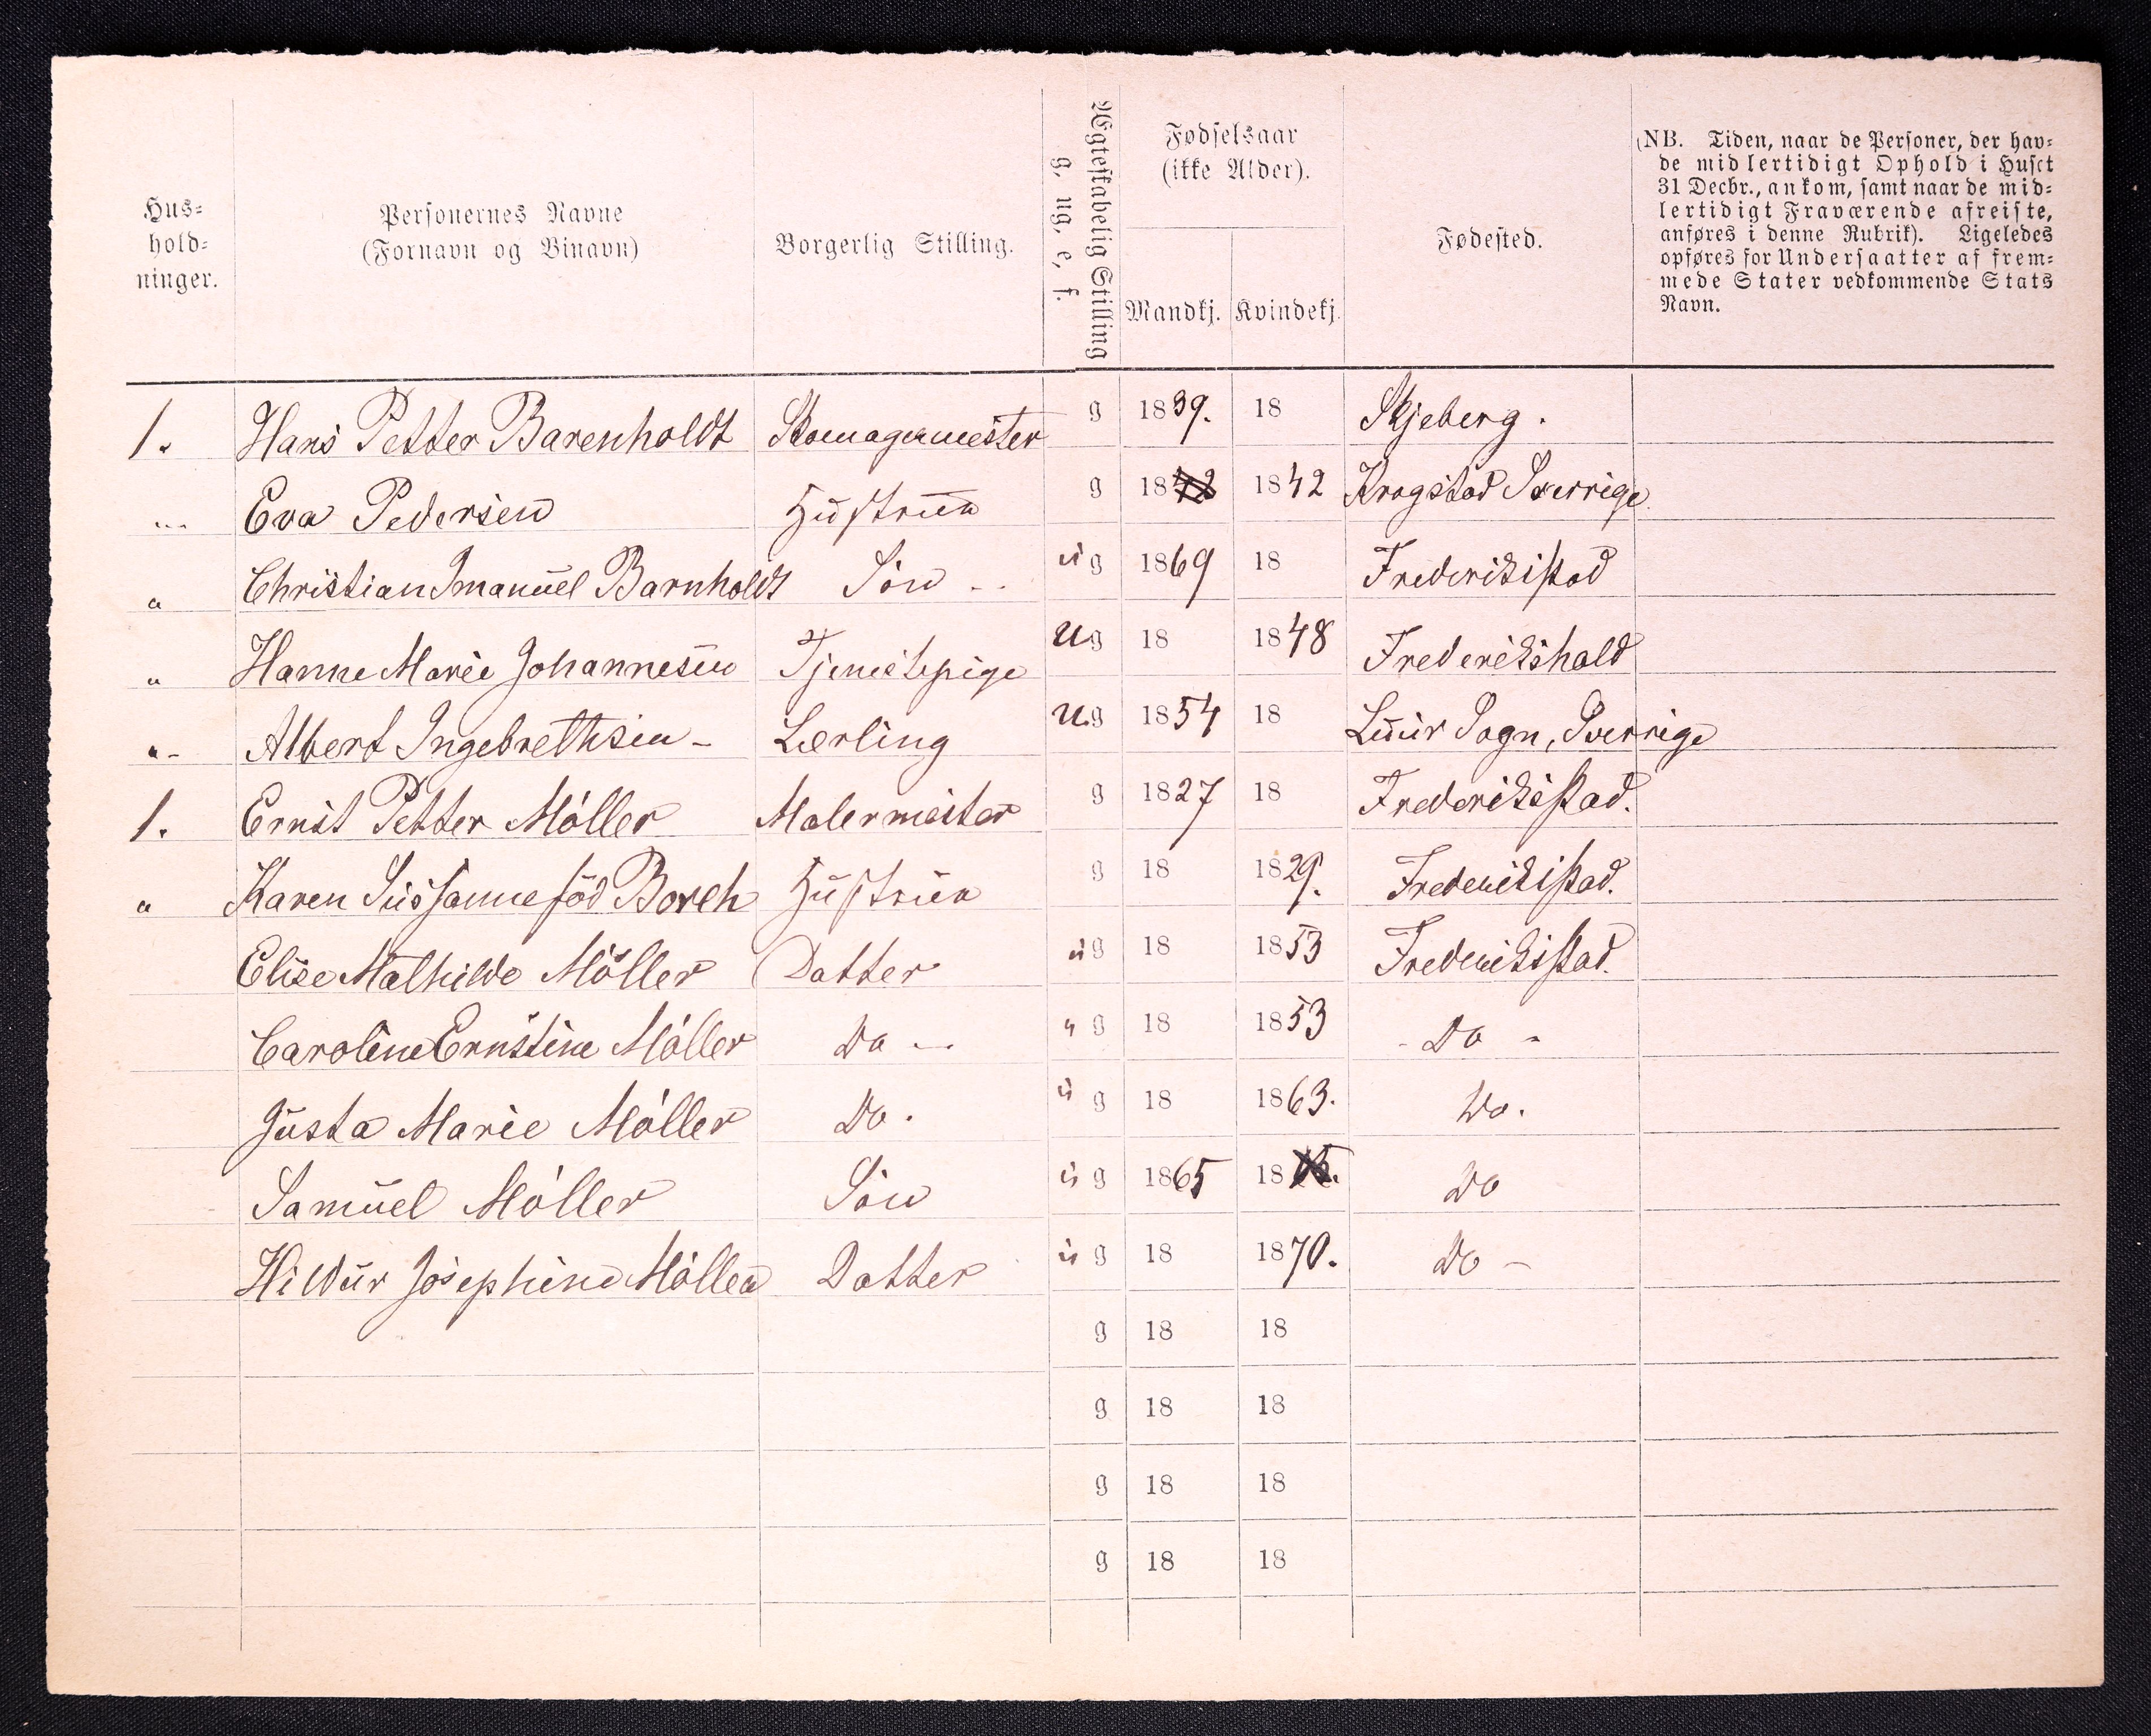 Hus-
hold-
ninger.
Personernes Navne
(Fornavn og Binavn)
Borgerlig Stilling.
Ægteskabelig Stilling
g, ug, e, f.
Fødselsaar
(ikke Alder).
Mandkj. Kvindekj.
Fødested.
(NB. Tiden, naar de Personer, der hav-
de midlertidigt Ophold i Huset
31 Decbr., ankom, samt naar de mid-
lertidigt Fraværende afreiste,
anføres i denne Rubrik). Ligeledes
opføres for Undersaatter af frem-
mede Stater vedkommende Stats
Navn.
1. Hans Petter Barenholdt Skomagermester g 1839. 18 Skjeberg.
"- Eva Pedersen Hustrue g 18 1842 Krogstad Sverrige
" Christian Imanuel Barnholdt Sön -- ug 1869 18 Frederiksstad
" Hanne Marie Johannesen Tjenestepige ug 18 1848 Frederikshald
"- Albert Ingebrethsen - Lærling ug 1854 18 Luur Sogn, Sverrige
1. Ernst Petter Möller Malermester g 1827 18 Frederiksstad.
" Karen Sussanne föd Borch Hustrue g 18 1829. Frederiksstad.
Elise Mathilde Möller Datter ug 18 1853 Frederiksstad.
Caroline Ernstine Möller Do - ug 18 1853 - Do -
Justa Marie Möller Do. ug 18 1863. Do.
Samuel Möller Sön ug 1865 18 Do
Hildur Josephine Möller Datter ug 18 1870. Do -
g 18 18
g 18 18
g 18 18
g 18 18